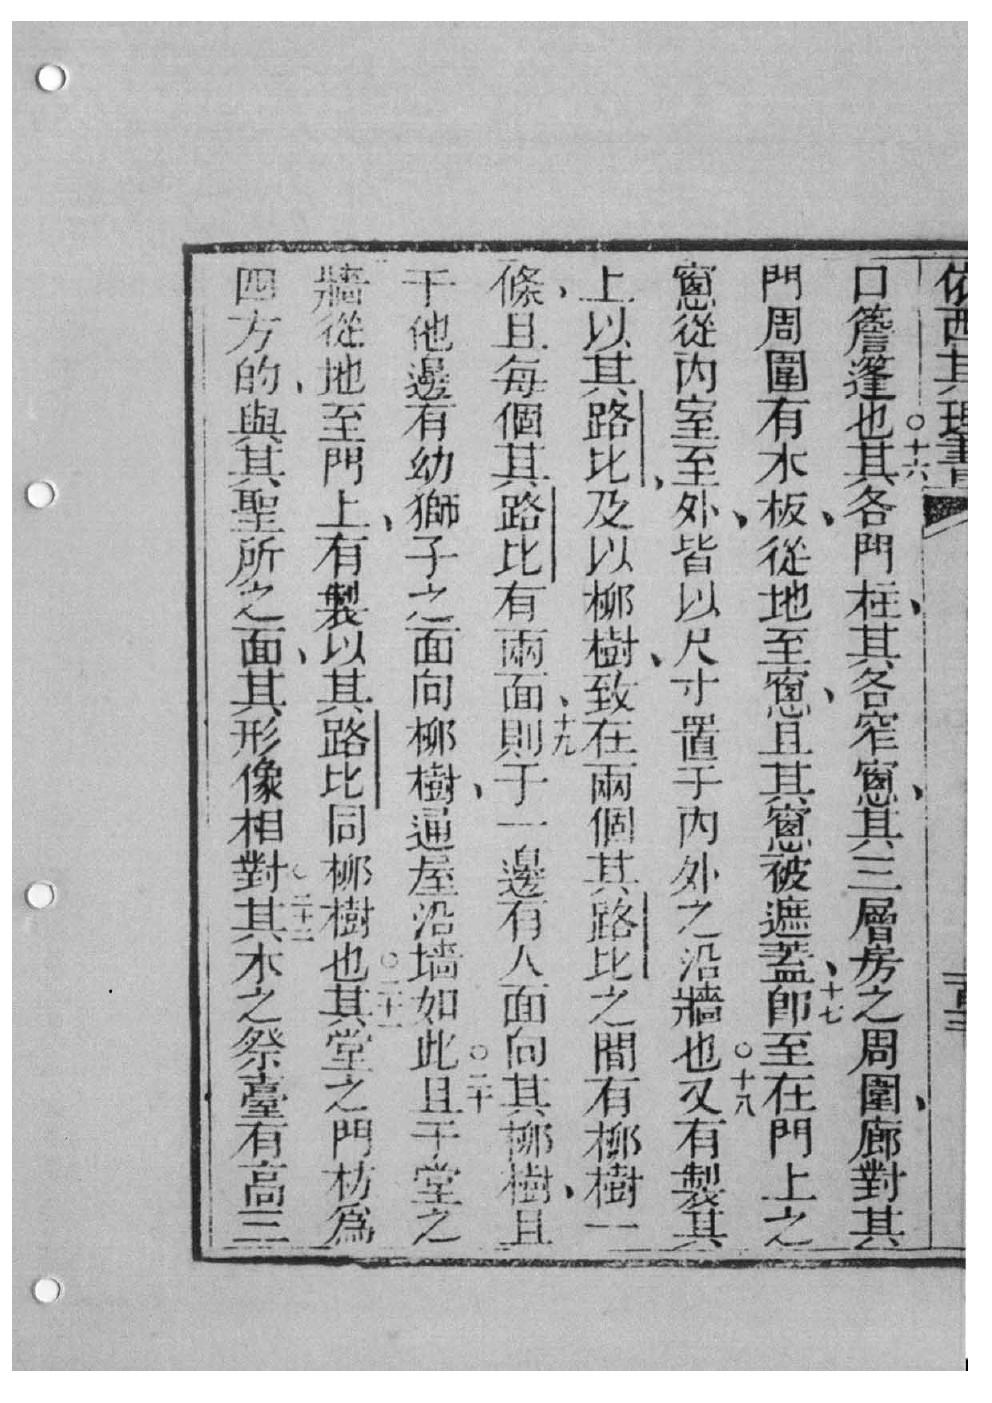 依西其理書
口簷蓬也○十六其各門柱、其各窄窻、其三層房之周圍廊、對其
門周圍有木板、從地至窻、且其窻被遮蓋、十七卽至在門上之
窻從內室至外、皆以尺寸置于內外之沿牆也○十八又有製其
上以其路比、及以柳樹、致在兩個其路比之間有柳樹一
條、且每個其路比有兩面、十九則于一邊有人面向其柳樹、且
于他邊有幼獅子之面向柳樹、通屋沿墻如此○二十且于堂之
牆從地至門上、有製以其路比同柳樹也○二十一其堂之門枋為
四方的、與其聖所之面、其形像相對○二十二其木之祭臺有高三